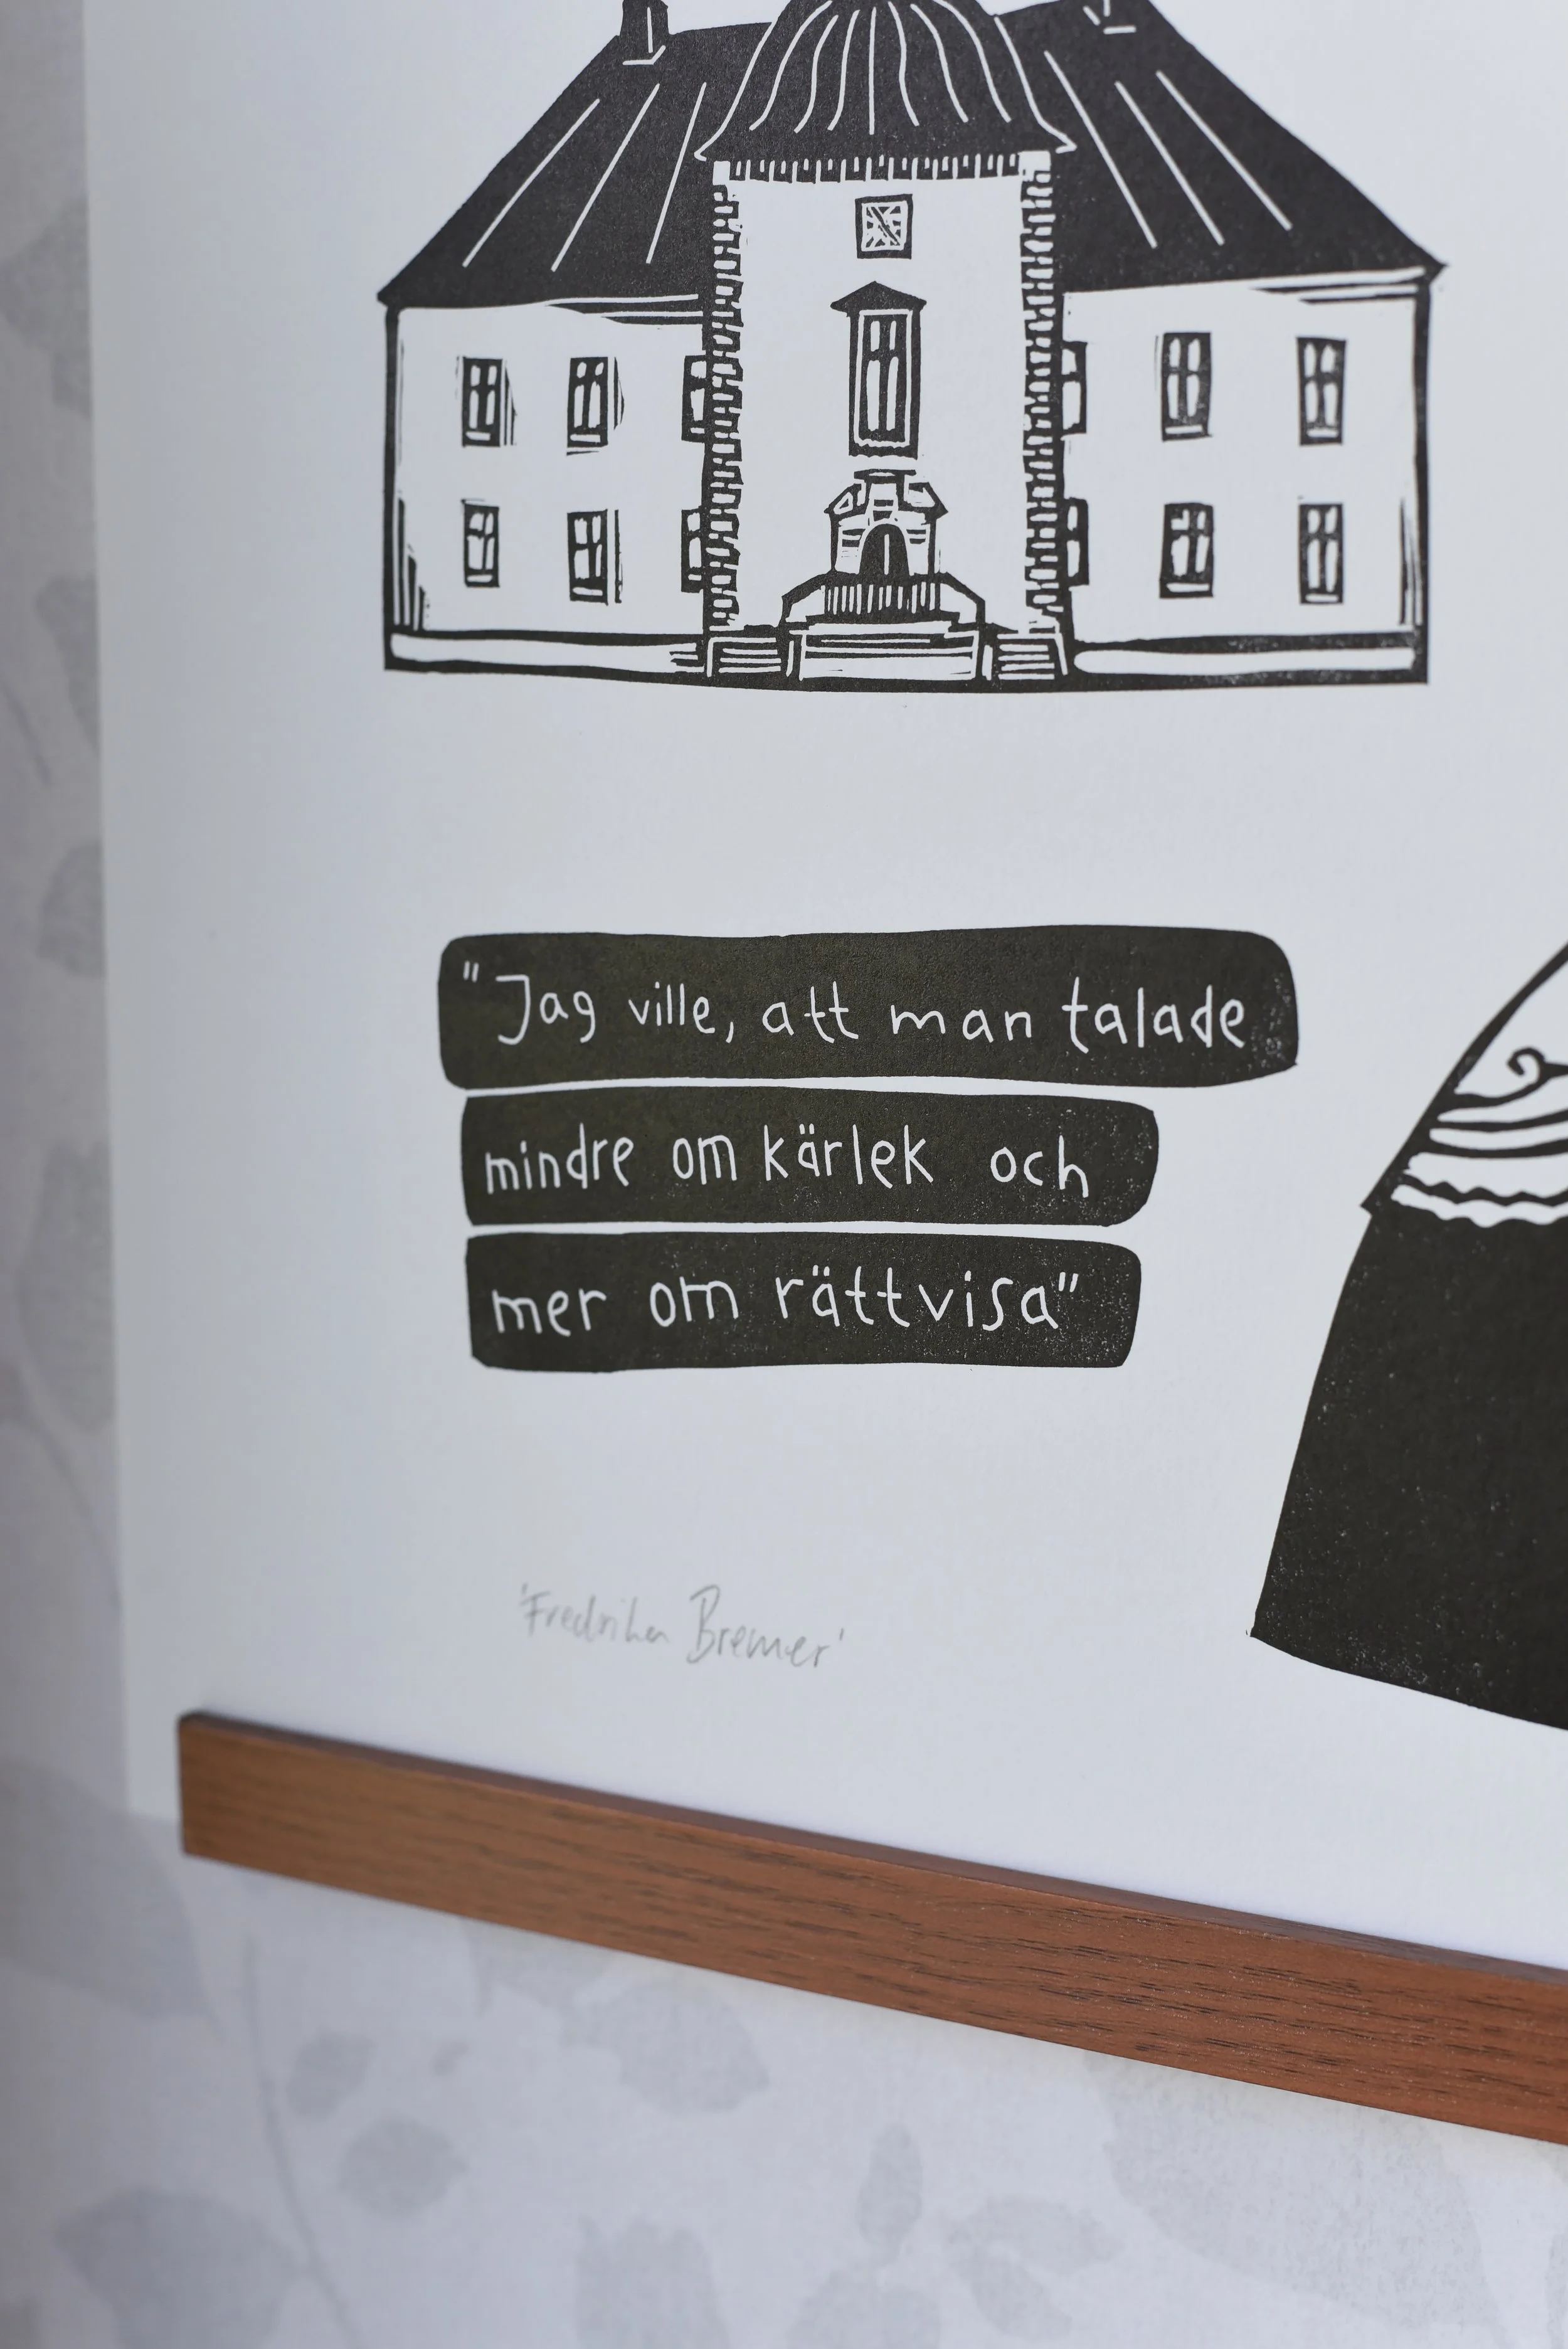 "Jag ville, att man talade
mindre om kärlek och
mer om rättvisa"
'Fredrika Bremer'